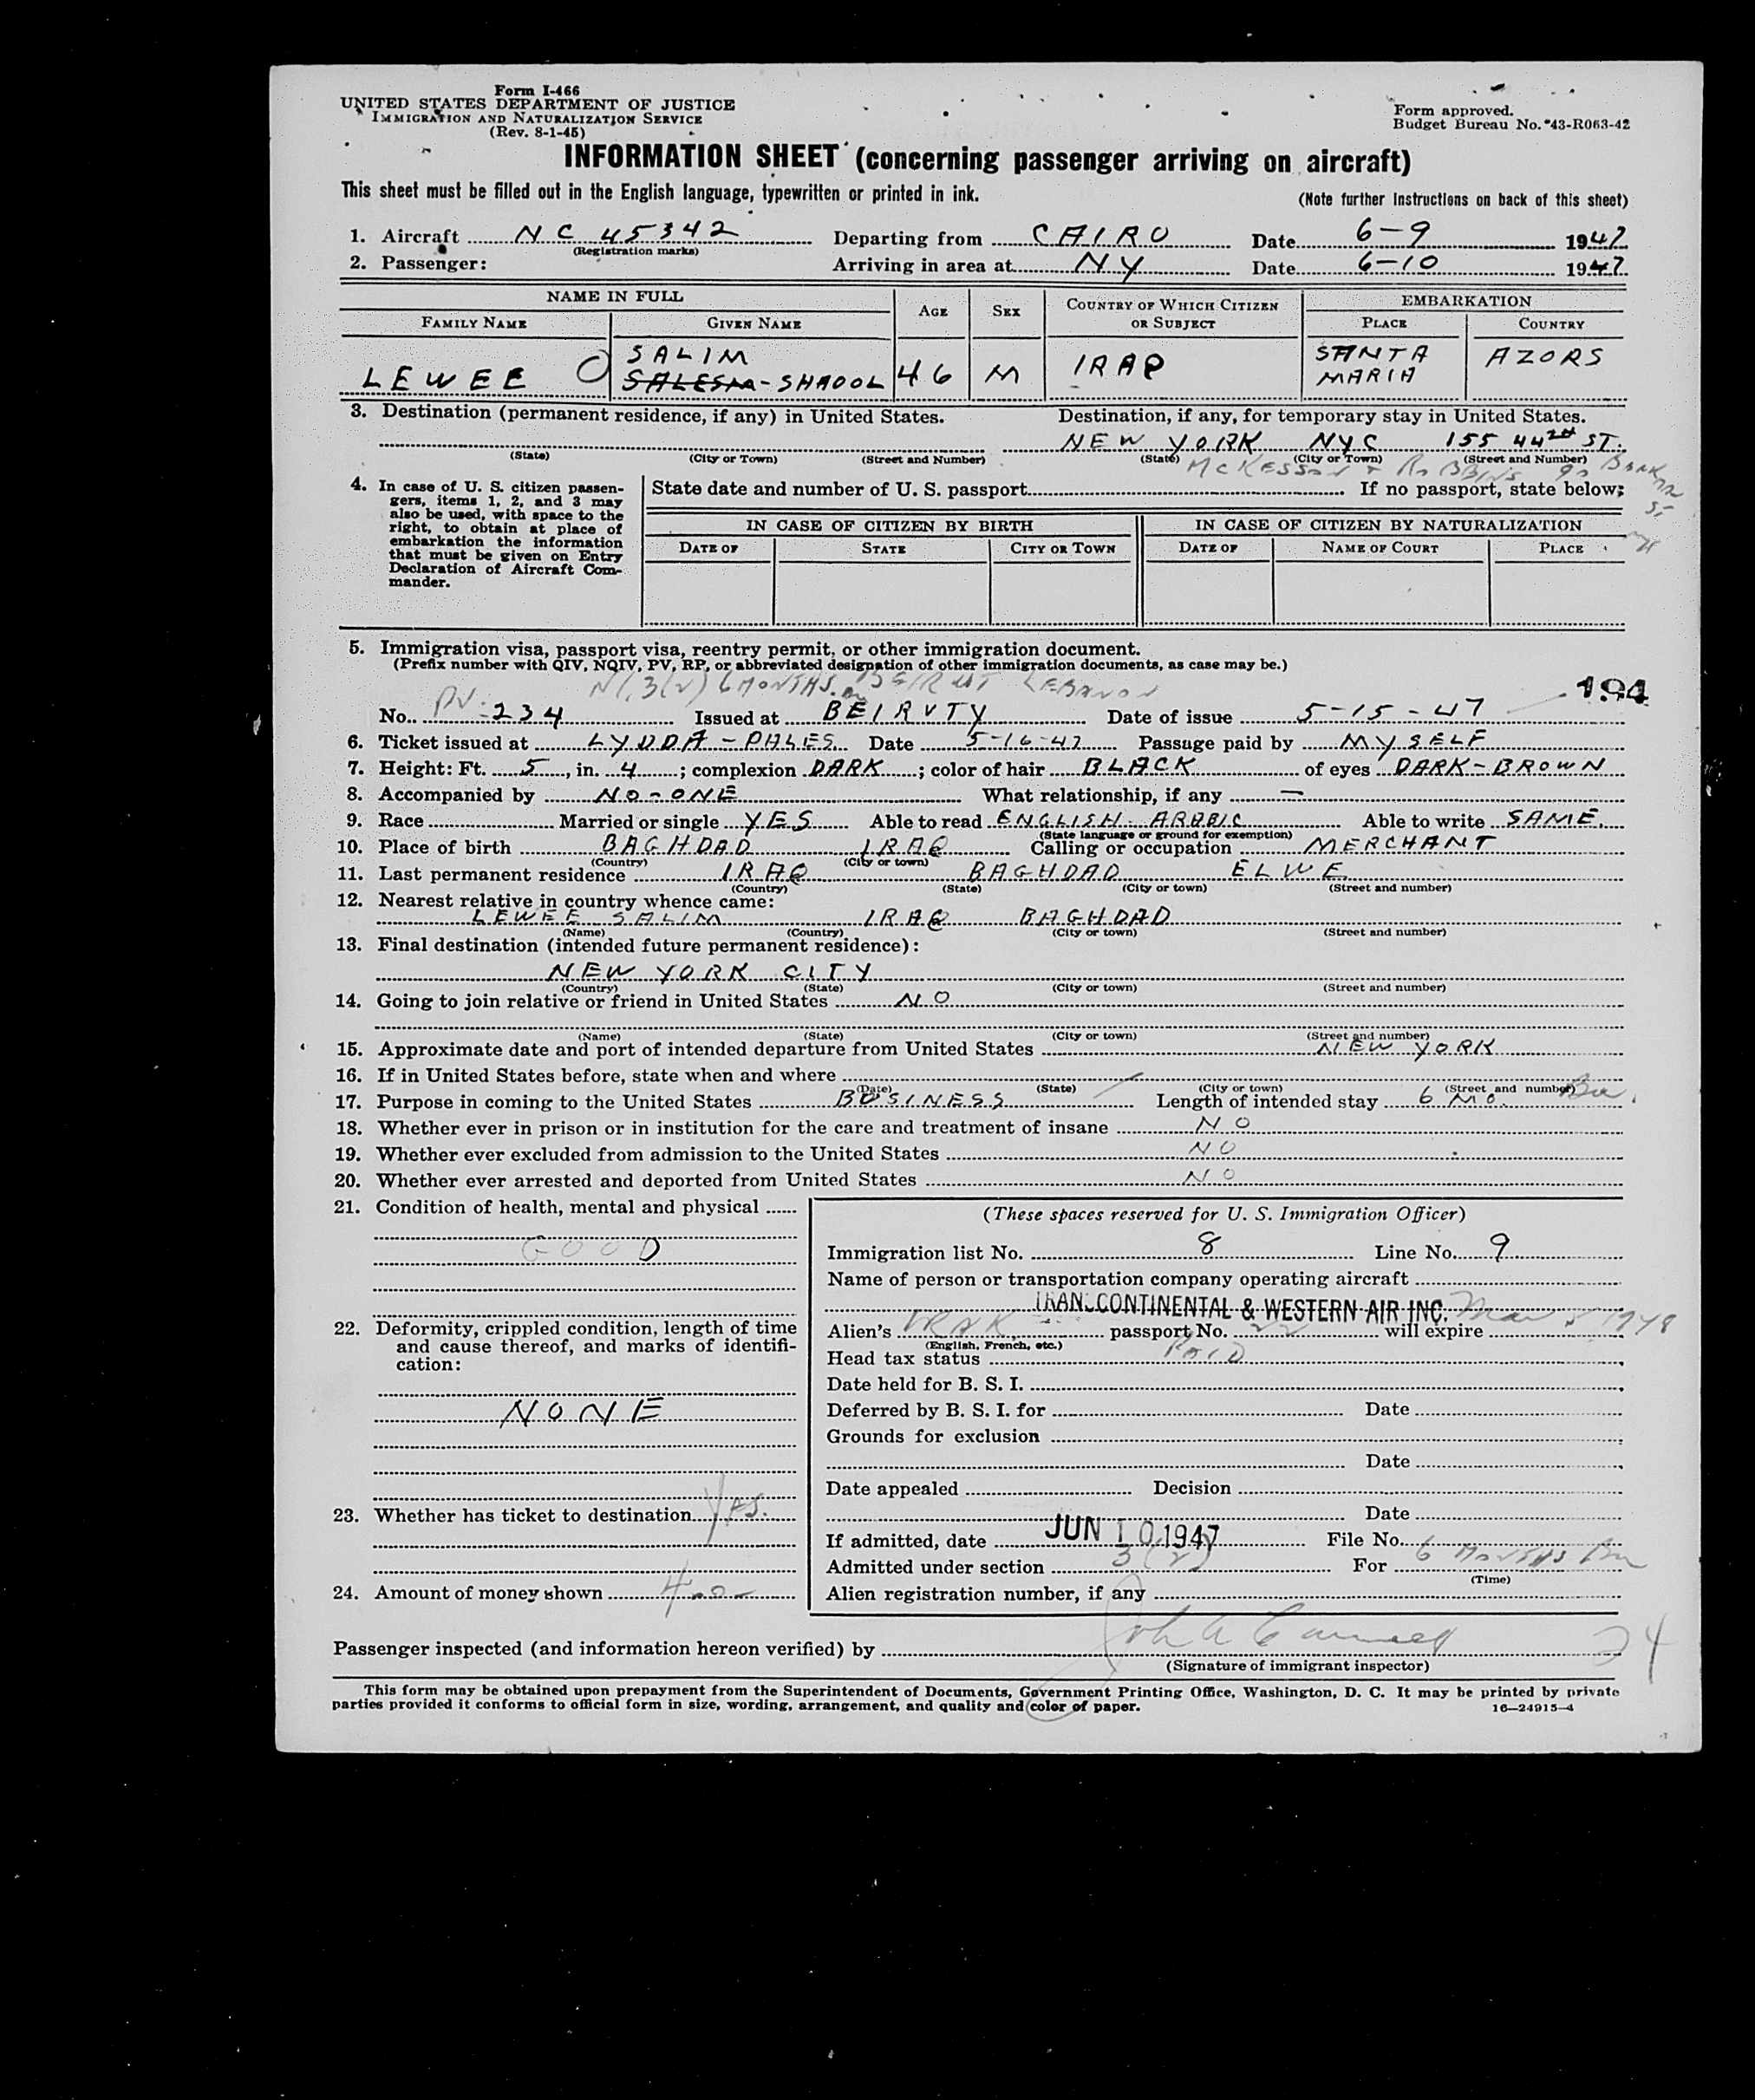 Form I-466
UNITED STATES DEPARTMENT OF JUSTICE
IMMIGRATION AND NATURALIZATION SERVICE
(Rev. 8-1-45)
Form approved.
Budget Bureau No. 43-R063-42
INFORMATION SHEET (concerning passenger arriving on aircraft)
This sheet must be filled out in the English language, typewritten or printed in ink.
(Note further instructions on back of this sheet)
1. Aircraft NC 45342 Departing from CAIRO Date 6-9 1947
(Registration marks)
2. Passenger: Arriving in area at NY Date 6-10 1947
NAME IN FULL AGE SEX COUNTRY OF WHICH CITIZEN OR SUBJECT EMBARKATION
FAMILY NAME GIVEN NAME PLACE COUNTRY
SALIM SANTA AZORS
LEWEE SHAOOL 46 M IRAQ MARIA
3. Destination (permanent residence, if any) in United States. Destination, if any, for temporary stay in United States.
NEW YORK NYC 155 44 ST.
(State) (City or Town) (Street and Number) (State) (City or Town) (Street and Number)
MCKESSON & ROBBINS 90
4. In case of U. S. citizen passen-
gers, items 1, 2, and 3 may
also be used, with space to the
right, to obtain at place of
embarkation the information
that must be given on Entry
Declaration of Aircraft Com-
mander.
State date and number of U. S. passport If no passport, state below:
IN CASE OF CITIZEN BY BIRTH IN CASE OF CITIZEN BY NATURALIZATION
DATE OF STATE CITY OR TOWN DATE OF NAME OF COURT PLACE
5. Immigration visa, passport visa, reentry permit, or other immigration document.
(Prefix number with QIV, NQIV, PV, RP, or abbreviated designation of other immigration documents, as case may be.)
3(2) 6 MONTHS. BEIRUT LEBANON
194
No. PV. 234 Issued at BEIRVTY Date of issue 5-15-47
6. Ticket issued at LYDDA-PALES. Date 5-16-47 Passage paid by MYSELF
7. Height: Ft. 5, in. 4; complexion DARK; color of hair BLACK of eyes DARK-BROWN
8. Accompanied by NO-ONE What relationship, if any —
9. Race Married or single YES Able to read ENGLISH-ARABIC Able to write SAME.
(State language or ground for exemption)
10. Place of birth BAGHDAD IRAQ Calling or occupation MERCHANT
(Country) (City or town)
11. Last permanent residence IRAQ BAGHDAD ELWE
(Country) (State) (City or town) (Street and number)
12. Nearest relative in country whence came:
LEWEE SALIM IRAQ BAGHDAD
(Name) (Country) (City or town) (Street and number)
13. Final destination (intended future permanent residence):
NEW YORK CITY
(Country) (State) (City or town) (Street and number)
14. Going to join relative or friend in United States NO
(Name) (State) (City or town) (Street and number)
15. Approximate date and port of intended departure from United States NEW YORK
16. If in United States before, state when and where
(Date) (State) (City or town) (Street and number)
17. Purpose in coming to the United States BUSINESS Length of intended stay 6 MO.
18. Whether ever in prison or in institution for the care and treatment of insane NO
19. Whether ever excluded from admission to the United States NO
20. Whether ever arrested and deported from United States NO
21. Condition of health, mental and physical
GOOD
22. Deformity, crippled condition, length of time
and cause thereof, and marks of identifi-
cation:
NONE
23. Whether has ticket to destination YES.
24. Amount of money shown 400-
(These spaces reserved for U. S. Immigration Officer)
Immigration list No. 8 Line No. 9
Name of person or transportation company operating aircraft
TRANSCONTINENTAL & WESTERN AIR INC.
Alien's IRAK passport No. 22 will expire 1948
(English, French, etc.)
Head tax status PAID
Date held for B. S. I.
Deferred by B. S. I. for Date
Grounds for exclusion
Date
Date appealed Decision
Date
If admitted, date JUN 10 1947 File No.
Admitted under section 3(2) For 6 MONTHS
(Time)
Alien registration number, if any
Passenger inspected (and information hereon verified) by John A
24
(Signature of immigrant inspector)
This form may be obtained upon prepayment from the Superintendent of Documents, Government Printing Office, Washington, D. C. It may be printed by private
parties provided it conforms to official form in size, wording, arrangement, and quality and color of paper.
16—24915-4